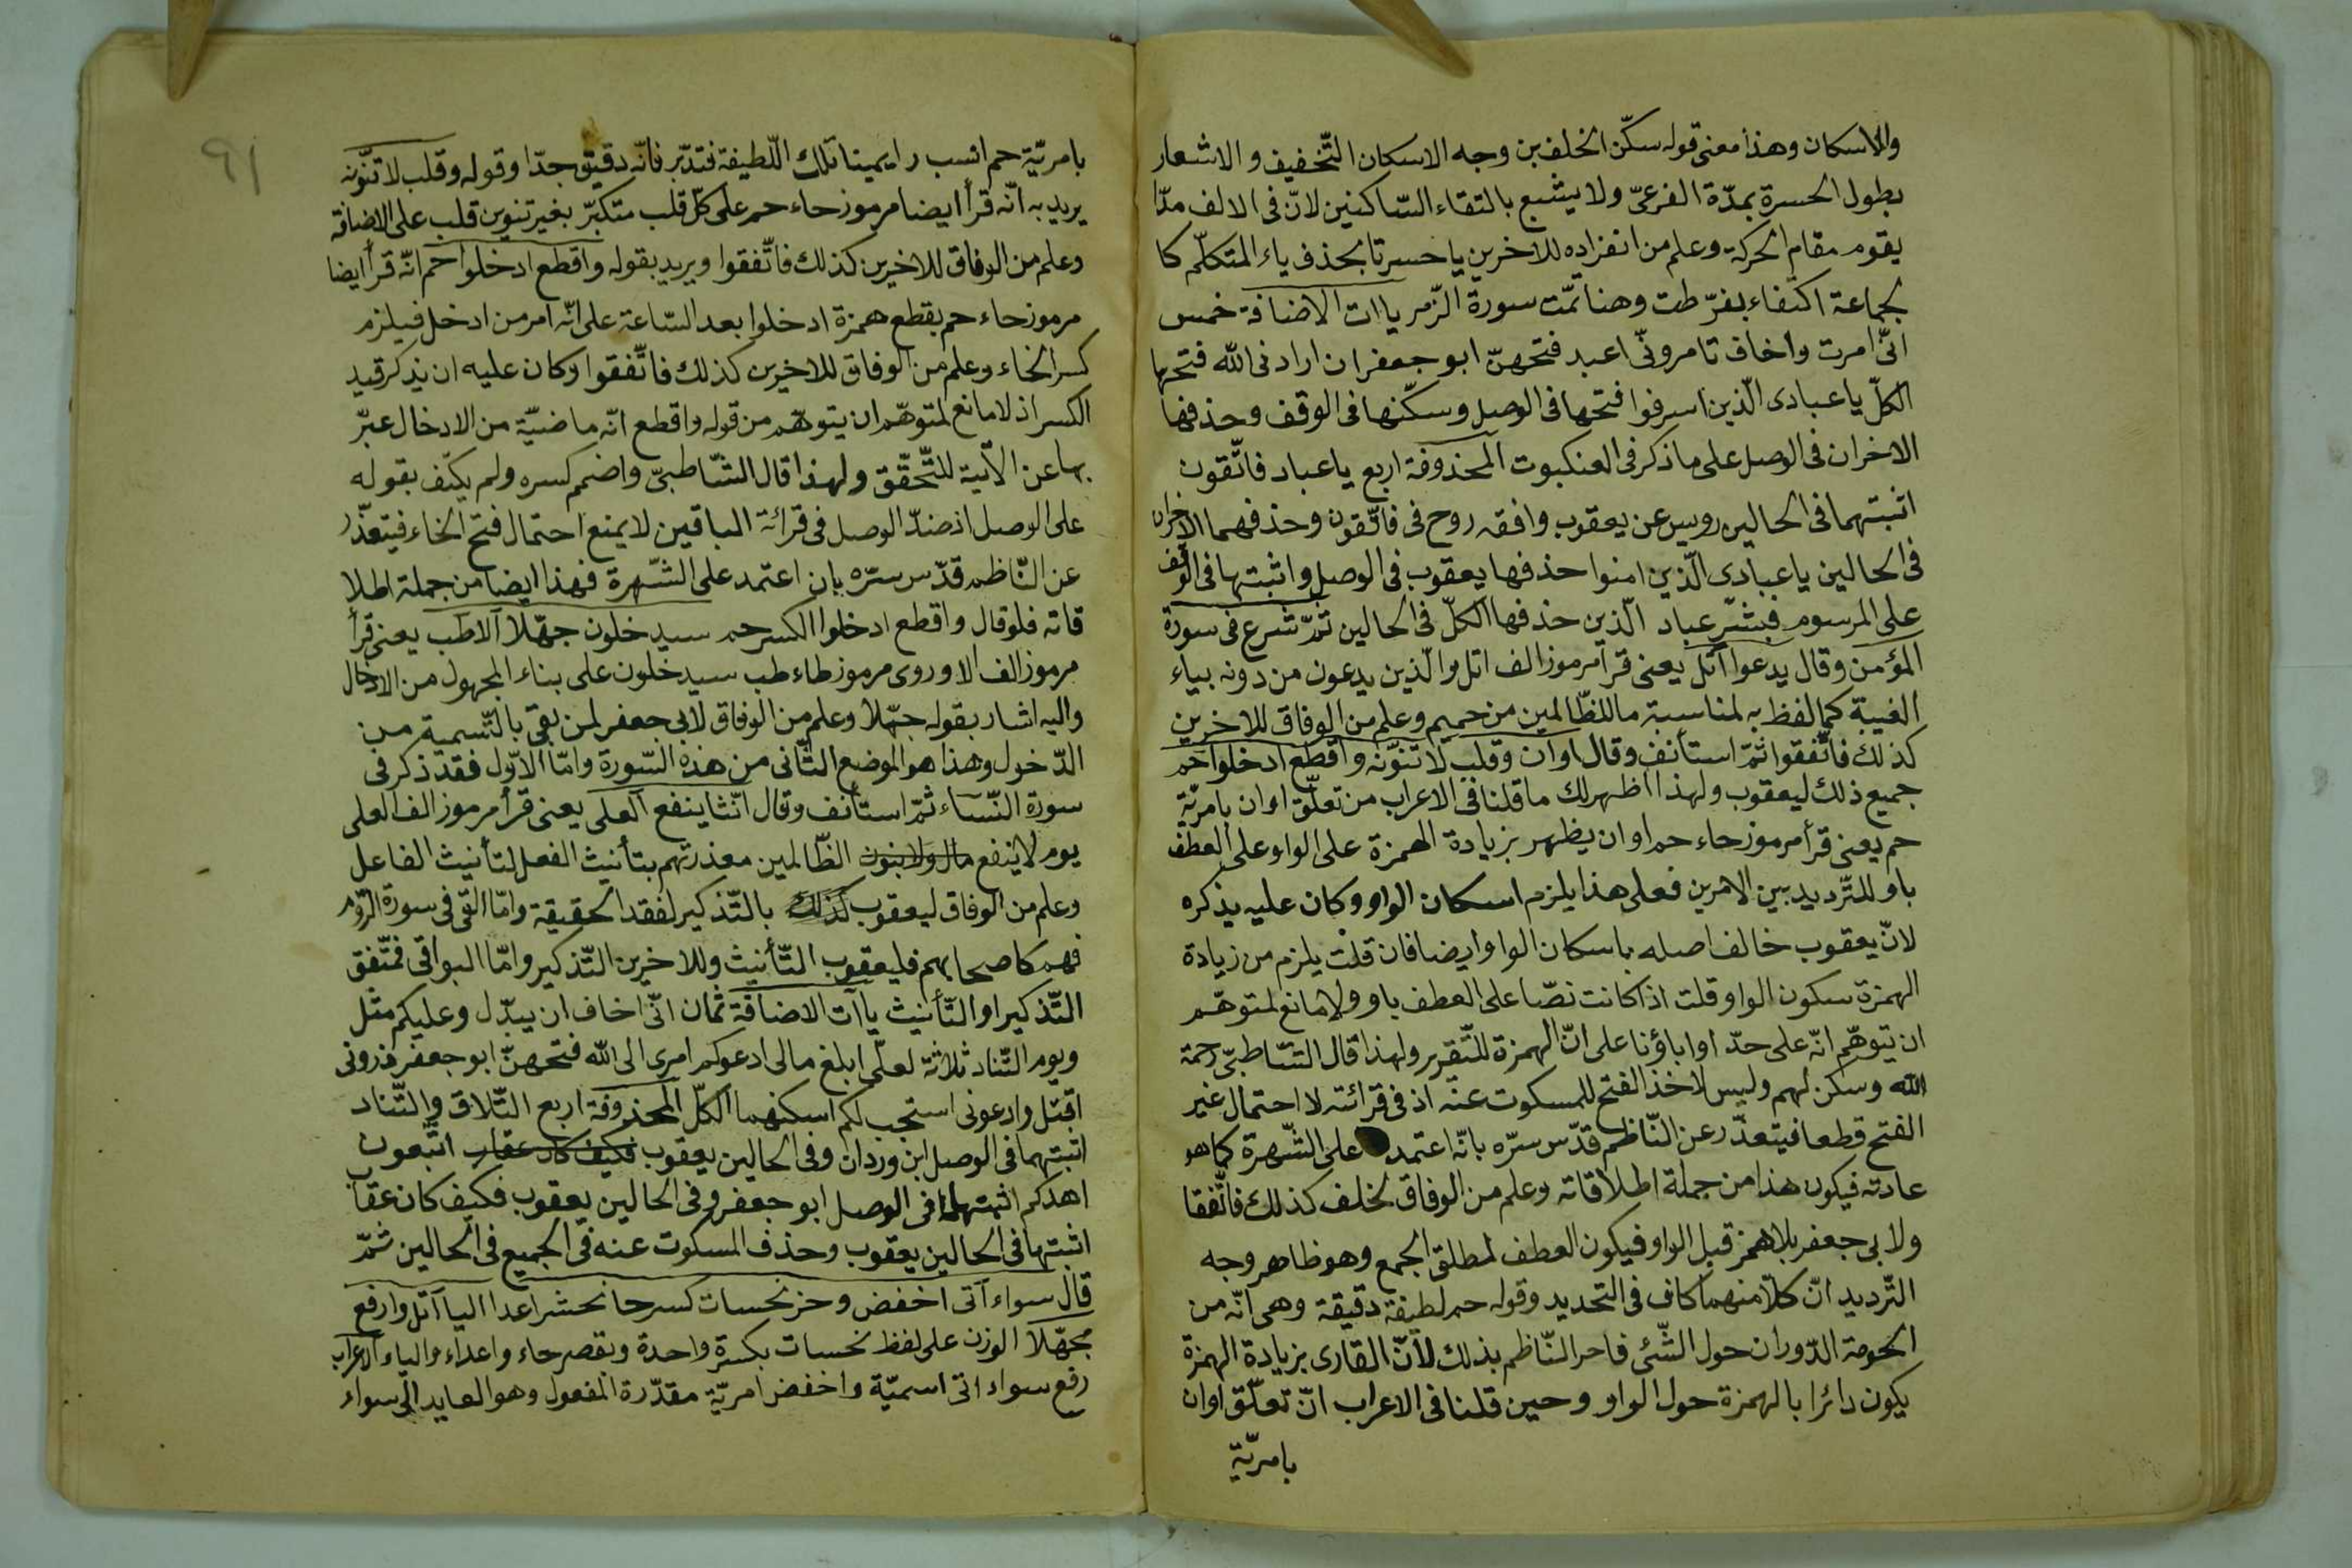 والاسكان وهذا معنى قوله سكّن الخلف بن وجه الاسكان التّخفيف و الاشعار
بطول الحسرة بمدّة الفرعىّ ولا يشبع بالتقاء السّاكنين لانّ فى الالف مدّا
يقوم مقام الحركة وعلم من انفراده للاخرين يا حسرتا بحذف ياء المتكلّم كا
لجماعة اكتفاء بفرّطت وهنا تمّت سورة الزّمر ياات الاضافة خمس
انّى امرت واخاف تامرونّى اعبد فتحهنّ ابو جعفر ان ارادنى الله فتحها
الكلّ يا عبادى الّذين اسرفوا فتحها فى الوصل وسكّنها فى الوقف وحذفها
الاخران فى الوصل على ما ذكر فى العنكبوت المحذوفة اربع يا عباد فاتّقون
اثبتهما فى الحالين رويس عن يعقوب وافقه روح فى فاتّقون وحذفهما الاخران
فى الحالين يا عبادى الّذين امنوا حذفها يعقوب فى الوصل واثبتها فى الوقف
على المرسوم فبشّر عباد الّذين حذفها الكلّ فى الحالين ثمّ شرع فى سورة
المؤمن وقال يدعوا اتل يعنى قرأ مرموز الف اتل والّذين يدعون من دونه بياء
الغيبة كما لفظ به لمناسبة ما للظّالمين من حميم وعلم من الوفاق للاخرين
كذلك فاتّفقوا ثمّ استأنف وقال اوان وقلب لا تنوّنه واقطع ادخلوا حم
جميع ذلك ليعقوب ولهذا اظهر لك ما قلنا فى الاعراب من تعلّق اوان بامريّة
حم يعنى قرأ مرموز حاء حم اوان يظهر بزيادة الهمزة على الواو على العطف
باو للتّرديد بين الامرين فعلى هذا يلزم اسكان الواو وكان عليه يذكره
لانّ يعقوب خالف اصله باسكان الواو ايضا فان قلت يلزم من زيادة
الهمزة سكون الواو قلت اذا كانت نصّا على العطف باو ولا مانع لمتوهّم
ان يتوهّم انّه على حدّ اواباؤنا على انّ الهمزة للتّقرير ولهذا قال الشّاطبىّ رحمة
الله وسكن لهم وليس لاخذ الفتح للمسكوت عنه اذ فى قرائته لا احتمال غير
الفتح قطعا فيتعذّر عن النّاظم قدّس سرّه بانّه اعتمد على الشّهرة كما هو
عادته فيكون هذا من جملة اطلاقاته وعلم من الوفاق لخلف كذلك فاتّفقا
ولابى جعفر بلا همز قبل الواو فيكون العطف لمطلق الجمع وهو ظاهر وجه
التّرديد انّ كلّا منهما كاف فى التحديد وقوله حم لطيفة دقيقة وهى انّه من
الحومة الدّوران حول الشّئ فاحر النّاظم بذلك لانّ القارى بزيادة الهمزة
يكون دائرا بالهمزة حول الواو وحين قلنا فى الاعراب انّ تعلّق اوان
بامريّة
٩١
بامريّة حم انسب رايمينا تلك اللّطيفة فتدبّر فانّه دقيق جدّا وقوله وقلب لا تنوّنه
يريد به انّه قرأ ايضا مرموز حاء حم على كلّ قلب متكبّر بغير تنوين قلب على الاضافة
وعلم من الوفاق للاخرين كذلك فاتّفقوا ويريد بقوله واقطع ادخلوا حم انّه قرأ ايضا
مرموز حاء حم بقطع همزة ادخلوا بعد السّاعة على انّه امر من ادخل فيلزم
كسر الخاء وعلم من الوفاق للاخرين كذلك فاتّفقوا وكان عليه ان يذكر قيد
الكسر اذ لا مانع لمتوهّم ان يتوهّم من قوله واقطع انّه ماضيّة من الادخال عبّر
بها عن الآتية للتّحقّق ولهذا قال الشّاطبىّ واضمم كسره ولم يكتف بقوله
على الوصل اذ ضدّ الوصل فى قرائة الباقين لا يمنع احتمال فتح الخاء فيتعذّر
عن النّاظم قدّس سرّه بان اعتمد على الشّهرة فهذا ايضا من جملة اطلا
قاته فلو قال واقطع ادخلوا اكسر حم سيدخلون جهّلا الاطب يعنى قرأ
مرموز الف الا وروى مرموز طاء طب سيدخلون على بناء المجهول من الادخال
واليه اشار بقوله جهّلا وعلم من الوفاق لابى جعفر لمن بقى بالتّسمية من
الدّخول وهذا هو الموضع الثّانى من هذه السّورة وامّا الاوّل فقد ذكر فى
سورة النّساء ثمّ استأنف وقال انّثا ينفع العلى يعنى قرأ مرموز الف العلى
يوم لا ينفع مال ولا بنون الظّالمين معذرتهم بتأنيث الفعل لتأنيث الفاعل
وعلم من الوفاق ليعقوب كذلك بالتّذكير لفقد الحقيقة وامّا الّتى فى سورة الرّوم
فهم كاصحابهم فليعقوب التّأنيث وللاخرين التّذكير وامّا البواقى فمتّفق
التّذكير او التّأنيث ياآت الاضافة ثمان انّى اخاف ان يبدّل وعليكم مثل
ويوم التّناد ثلاثة لعلّى ابلغ مالى ادعوكم امرى الى الله فتحهنّ ابو جعفر ذرونى
اقتل وادعونى استجب لكم اسكنهما الكلّ المحذوفة اربع التّلاق والتّناد
اثبتهما فى الوصل ابن وردان وفى الحالين يعقوب فكيف كان عقاب اتّبعون
اهدكم اثبتها فى الوصل ابو جعفر وفى الحالين يعقوب فكيف كان عقاب
اثبتها فى الحالين يعقوب وحذف المسكوت عنه فى الجميع فى الحالين ثمّ
قال سواء اتى اخفض وحز نحسات كسر حا نحشر اعدا اليا اتل وارفع
مجهّلا الوزن على لفظ نحسات بكسرة واحدة وبقصر حاء واعداء والياء الاعراب
رفع سواء اتى اسميّة واخفض امريّة مقدّرة المفعول وهو العايد الى سواء